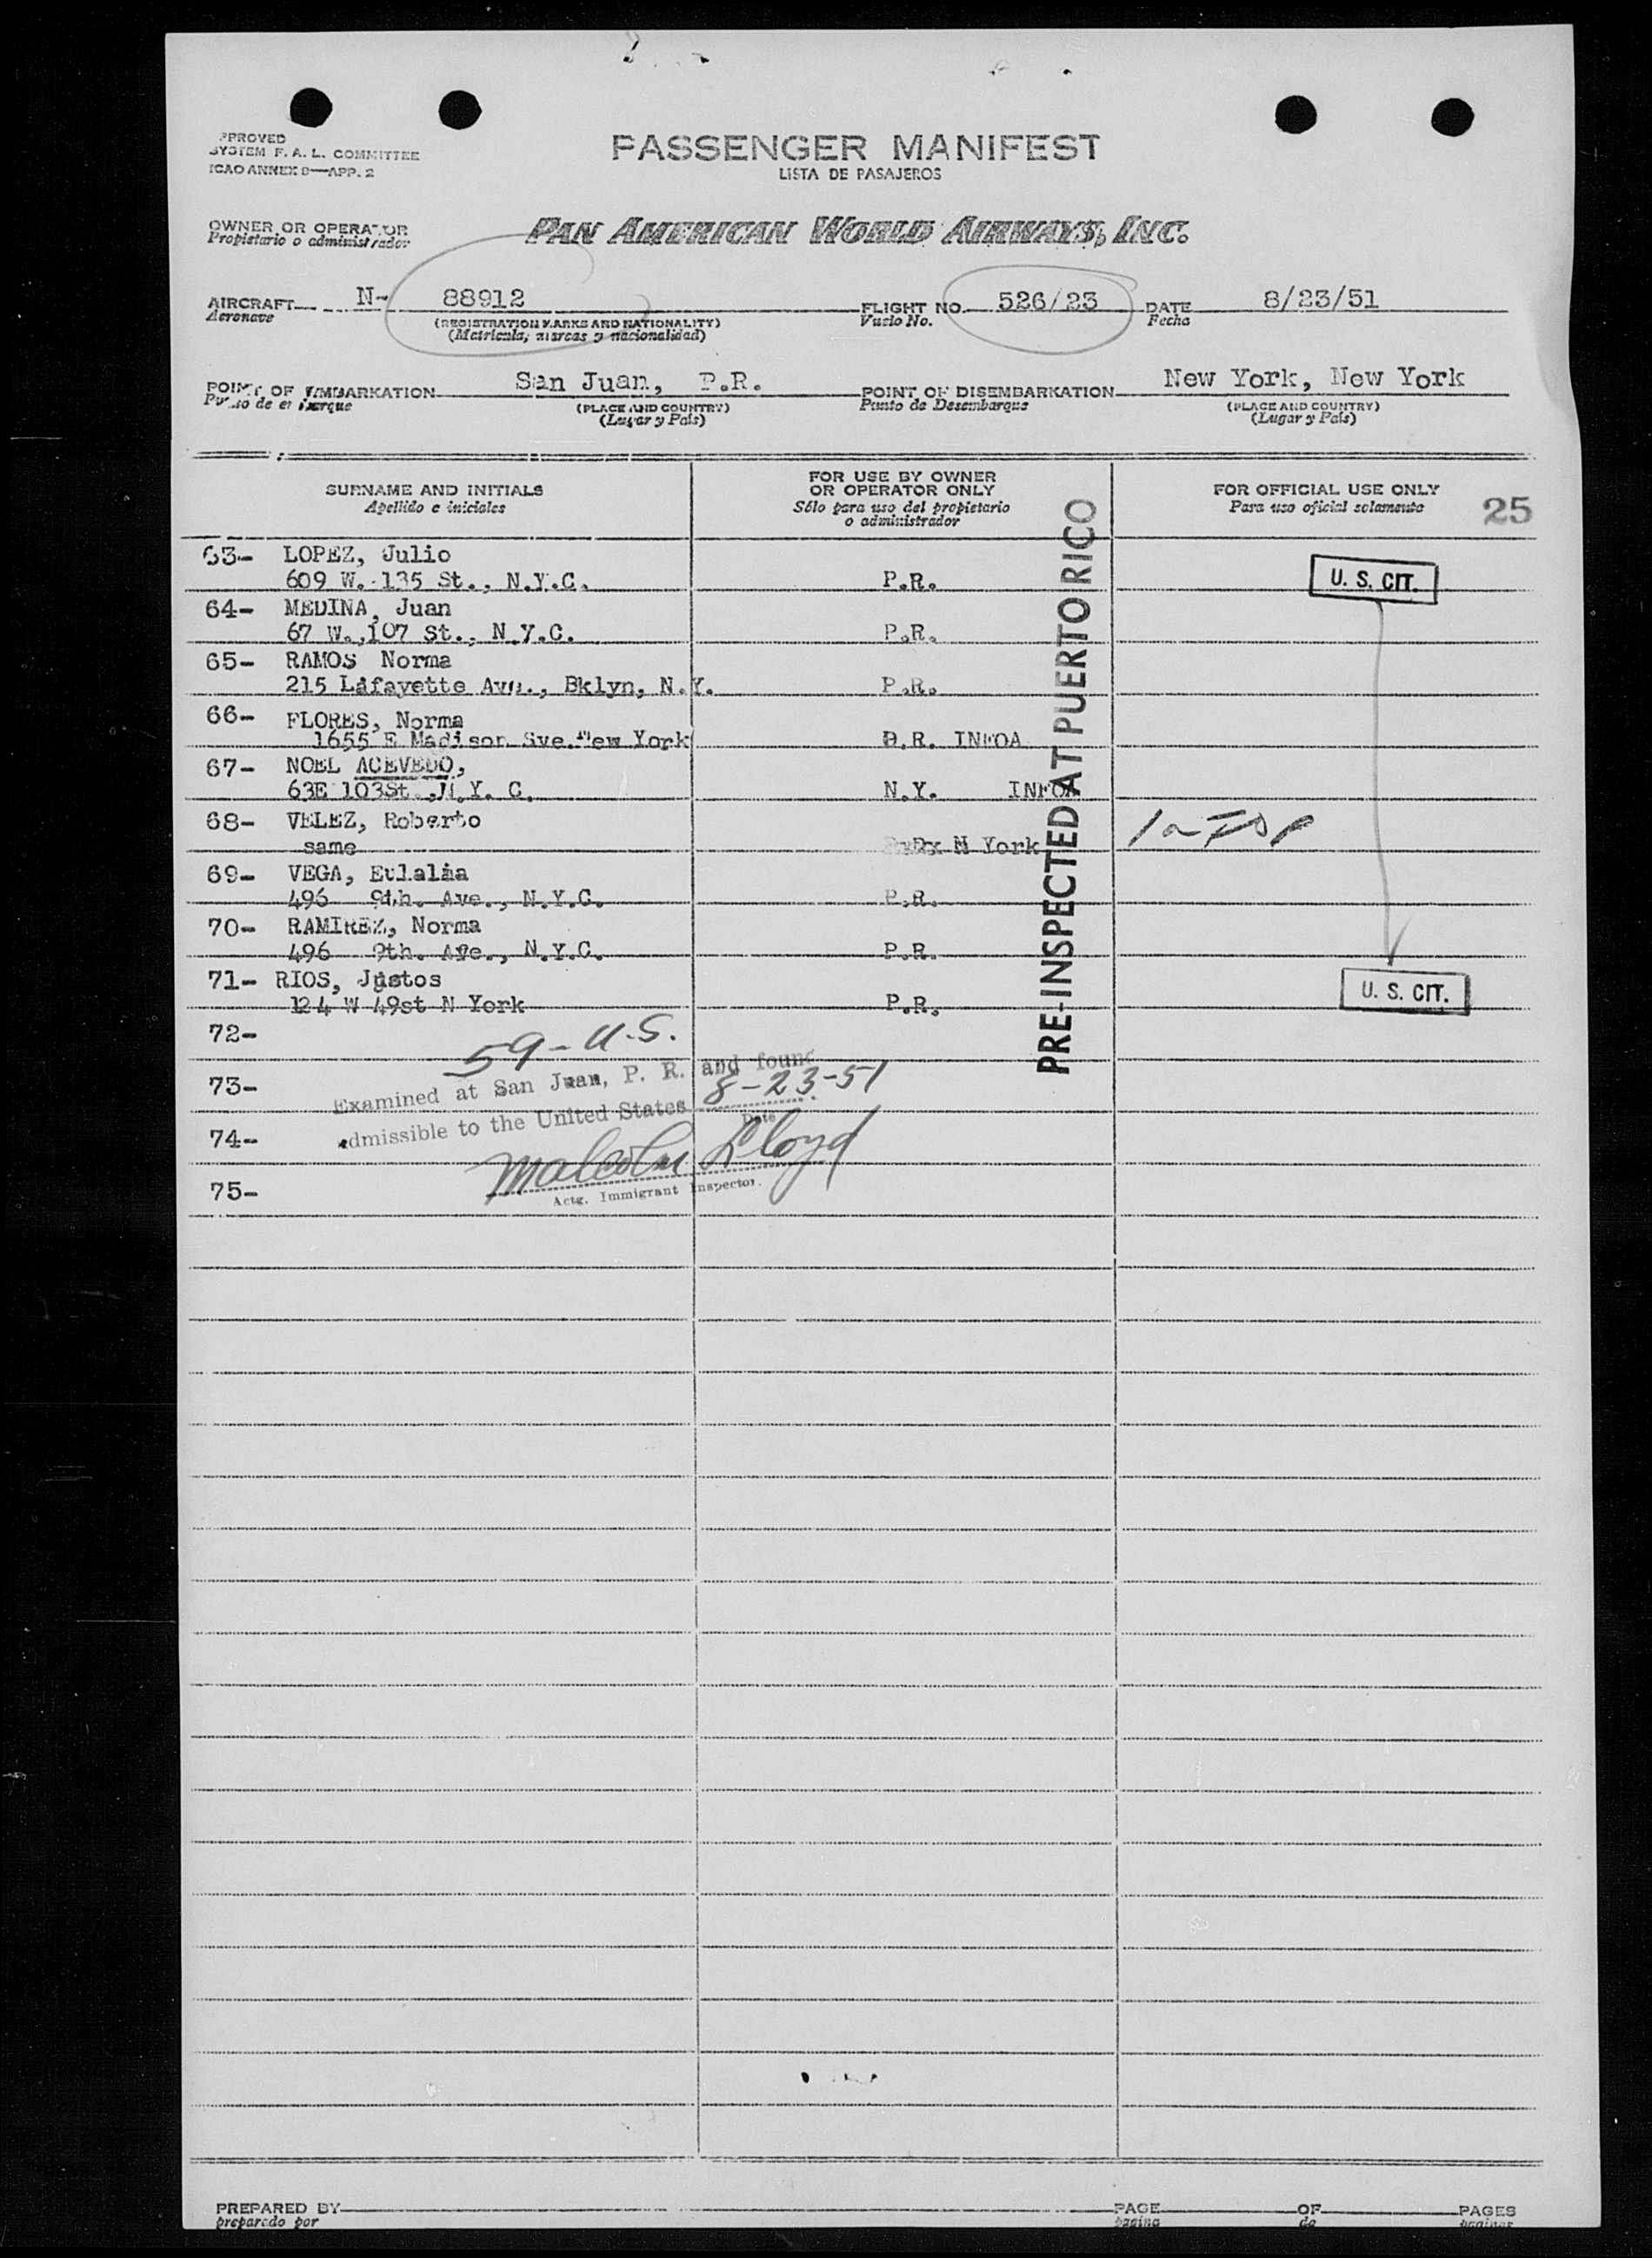 APPROVED
SYSTEM F. A. L. COMMITTEE
ICAO ANNEX 9—APP. 2
PASSENGER MANIFEST
LISTA DE PASAJEROS
OWNER OR OPERATOR
Propietario o administrador
PAN AMERICAN WORLD AIRWAYS, INC.
AIRCRAFT N- 88912 FLIGHT NO. 526/23 DATE 8/23/51
Aeronave (REGISTRATION MARKS AND NATIONALITY) Vuelo No. Fecha
(Matricula, marcas y nacionalidad)
POINT OF EMBARKATION San Juan, P.R. POINT OF DISEMBARKATION New York, New York
Punto de embarque (PLACE AND COUNTRY) Punto de Desembarque (PLACE AND COUNTRY)
(Lugar y País) (Lugar y País)
SURNAME AND INITIALS
Apellido e iniciales
FOR USE BY OWNER
OR OPERATOR ONLY
Sólo para uso del propietario
o administrador
FOR OFFICIAL USE ONLY
Para uso oficial solamente
25
63- LOPEZ, Julio
609 W. 135 St., N.Y.C. P.R. U. S. CIT.
64- MEDINA, Juan
67 W. 107 St., N.Y.C. P.R.
65- RAMOS Norma
215 Lafayette Ave., Bklyn, N.Y. P.R.
66- FLORES, Norma
1655 E Madison Sve. New York P.R. INFOA
67- NOEL ACEVEDO,
63E 103St., N.Y. C. N.Y. INFOA
68- VELEZ, Roberto
same N York
69- VEGA, Eulalia
496 9th. Ave., N.Y.C. P.R.
70- RAMIREZ, Norma
496 9th. Ave., N.Y.C. P.R.
71- RIOS, Justos
124 W 49st N York P.R. U. S. CIT.
PRE-INSPECTED AT PUERTO RICO
72-
59-U.S.
73-
Examined at San Juan, P. R. and found
admissible to the United States 8-23-51
Date
74-
Malcolm Lloyd
75-
Actg. Immigrant Inspector.
PREPARED BY PAGE OF PAGES
preparado por página de páginas